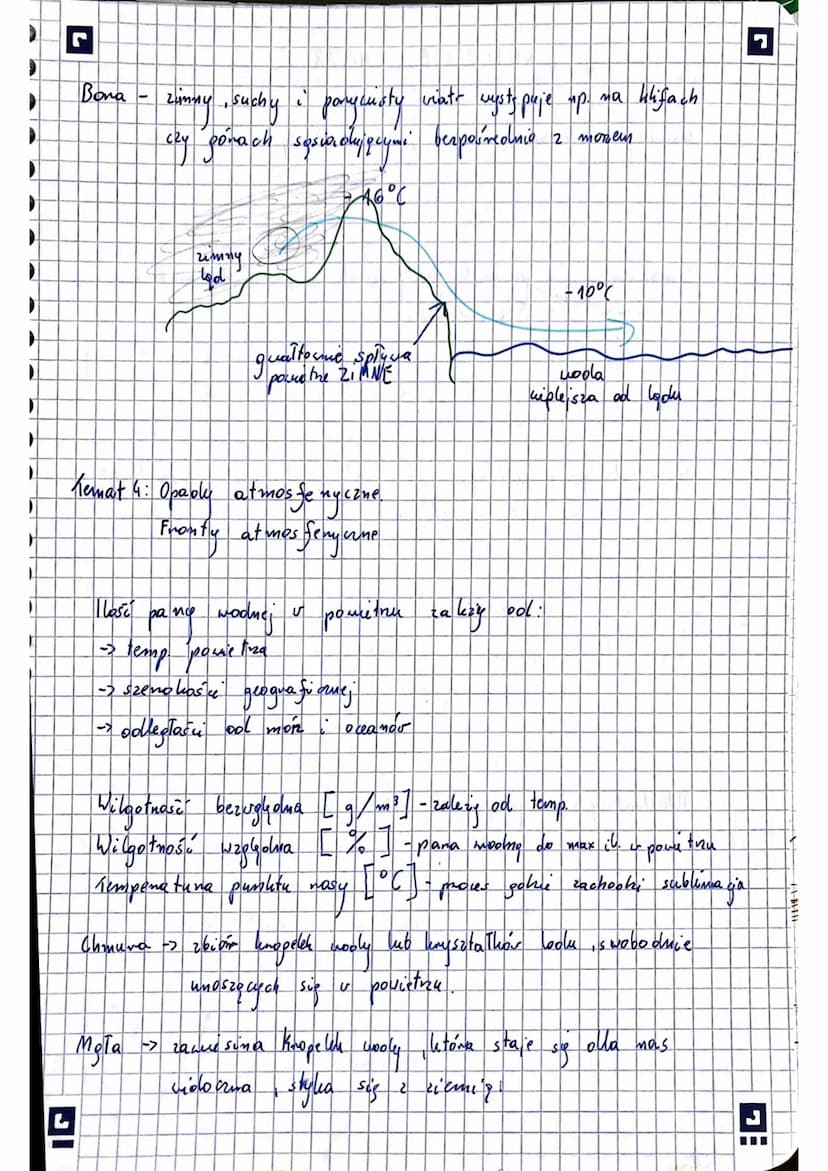 Bora - zimny, suchy i porywisty wiatr występuje np. na klifach
czy górach sąsiadującymi bezpośrednio z morzem
-16°C
zimny
ląd
-10°C
gwałtownie spływa
powietrze ZIMNE
woda
cieplejsza od lądu
Temat 4: Opady atmosferyczne.
Fronty atmosferyczne
Ilość pary wodnej w powietrzu zależy od:
-> temp. powietrza
-> szerokości geograficznej
-> odległości od mórz i oceanów
Wilgotność bezwzględna [g/m³] - zależy od temp.
Wilgotność względna [%] - para wodną do max il. w powietrzu
Temperatura punktu rosy [°C] - proces gdzie zachodzi sublimacja
Chmura -> zbiór kropelek wody lub kryształków lodu, swobodnie
unoszących się w powietrzu.
Mgła -> zawiesina kropelek wody, która staje się dla nas
widoczna, styka się z ziemią.